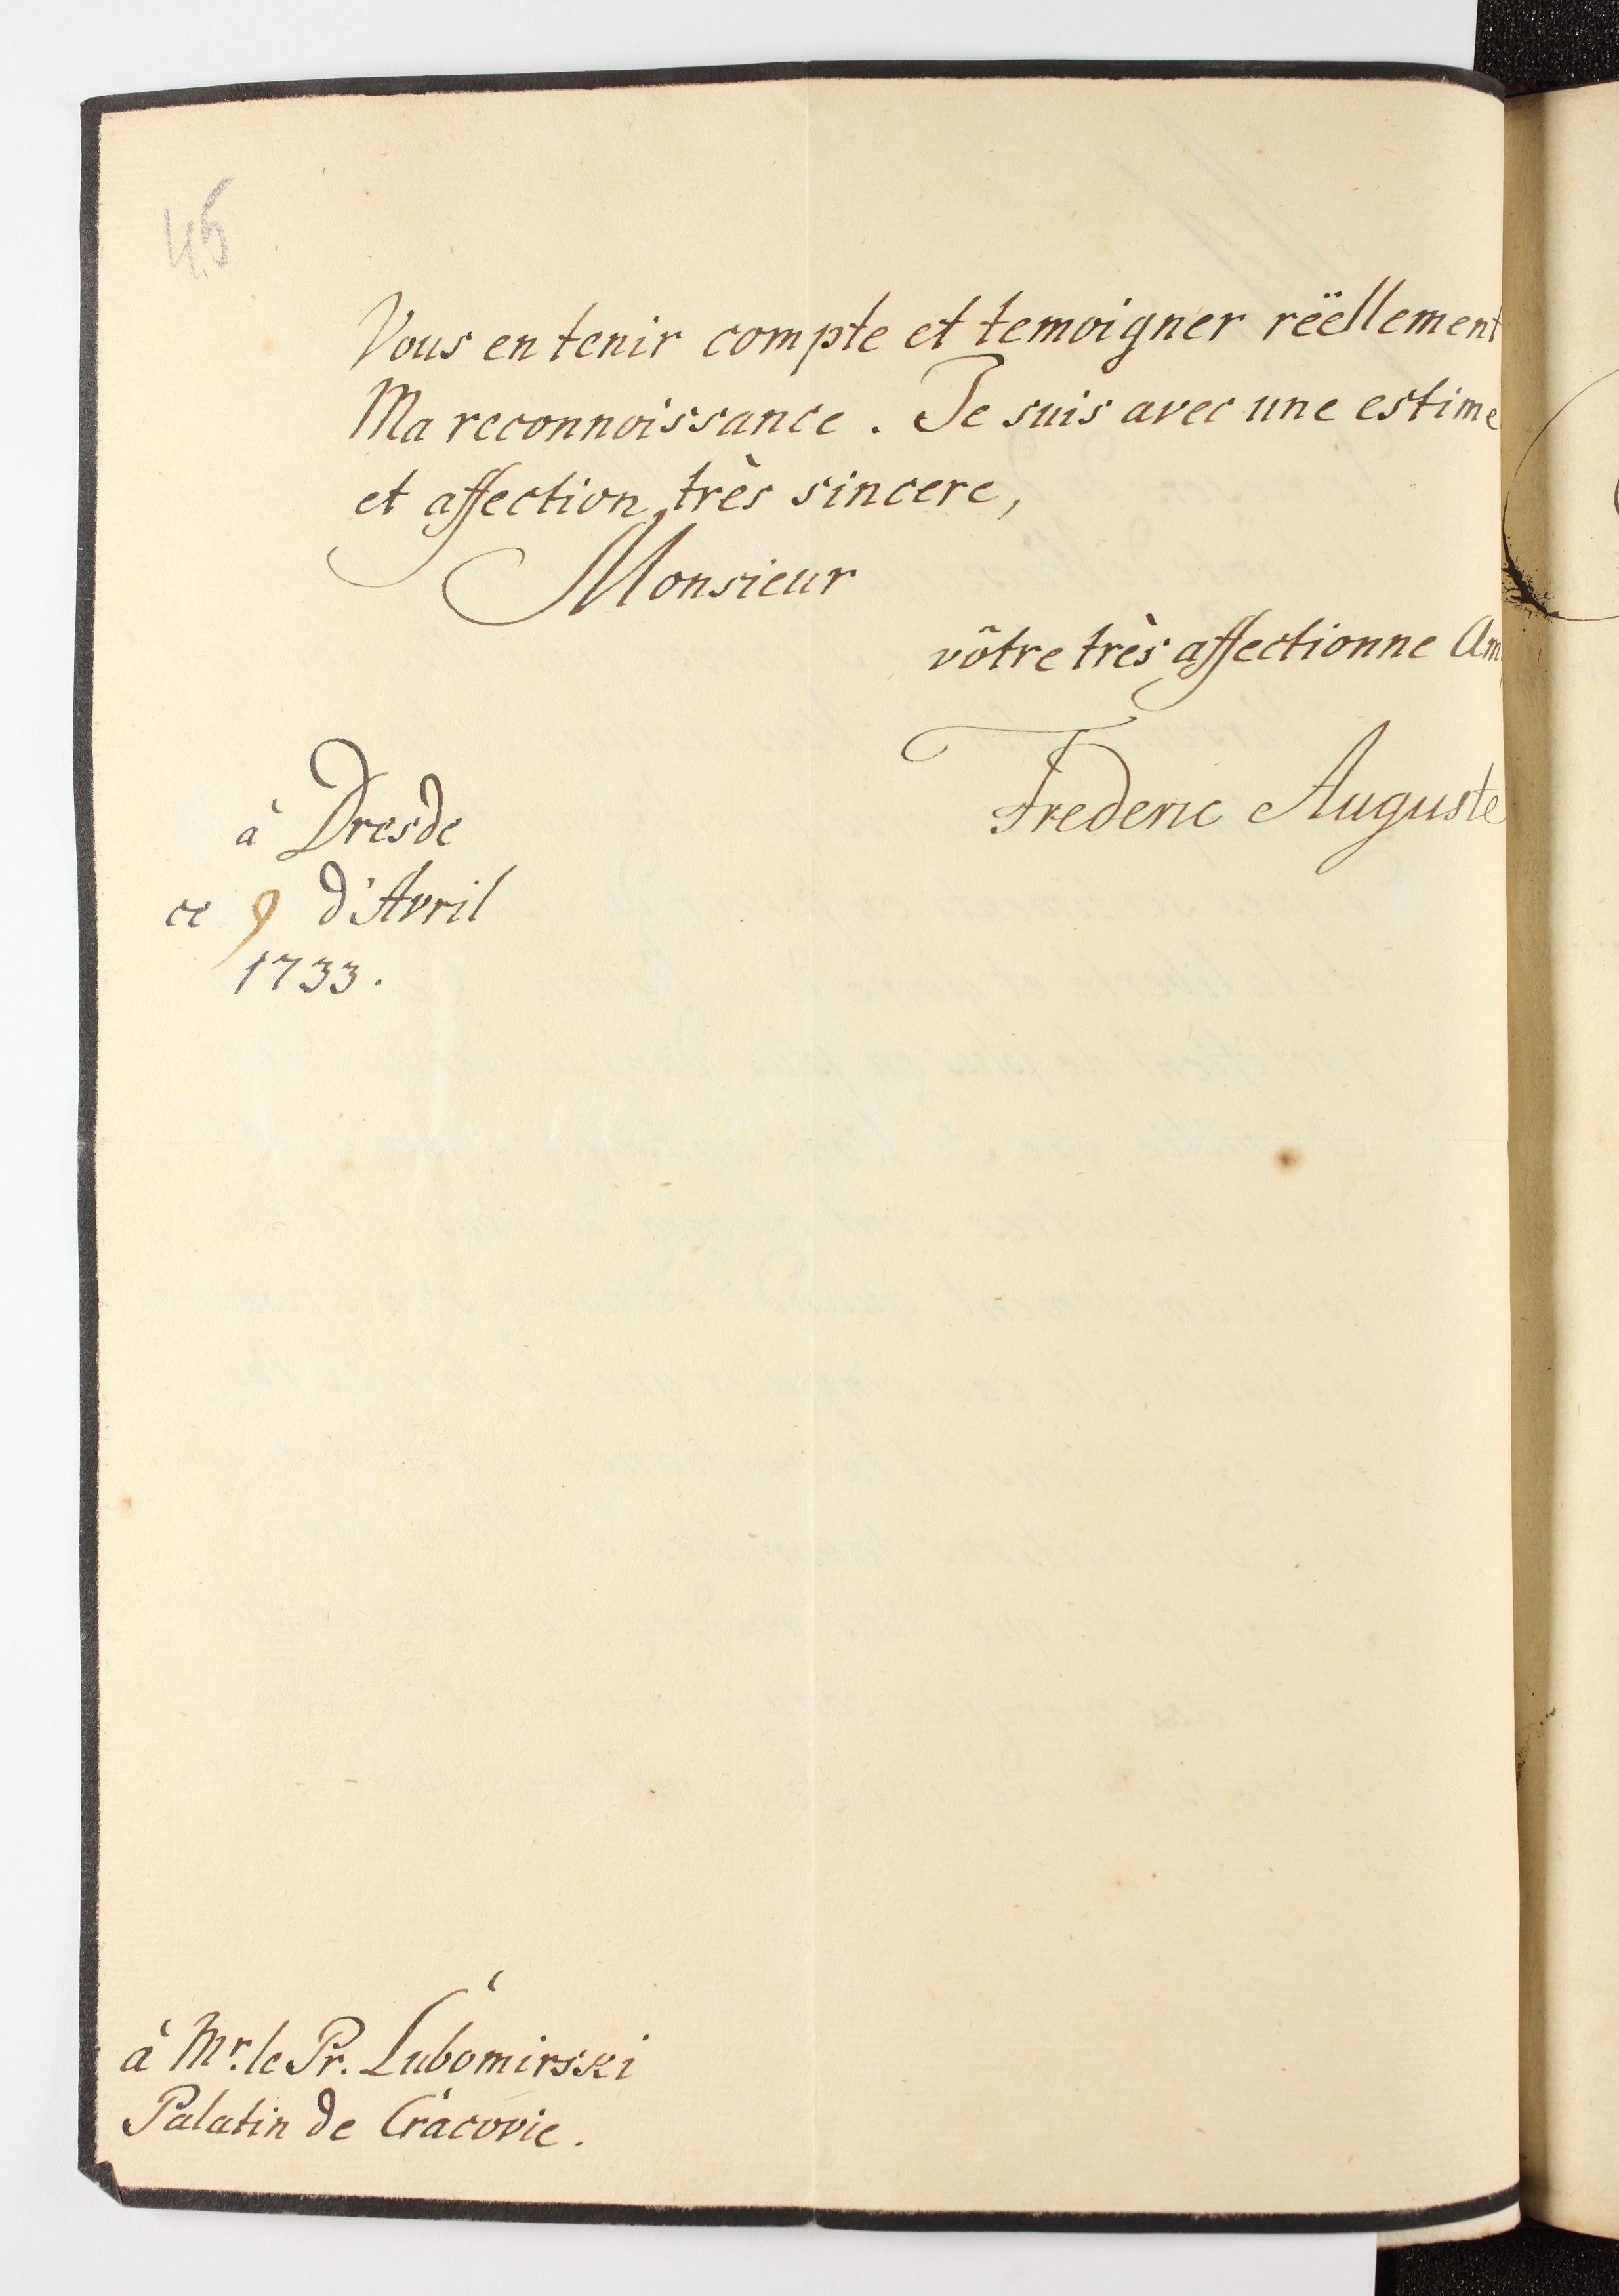 45
Vous en tenir compte et temoigner rëellement
Ma reconnoissance. Je suis avec une estime
et affection très sincere,
Monsieur
vôtre très affectionne Am
Frederic Auguste
à Dresde
ce 9 d'Avril
1733.
à Mr. le Pr. Lubomirski
Palatin de Cracovie.